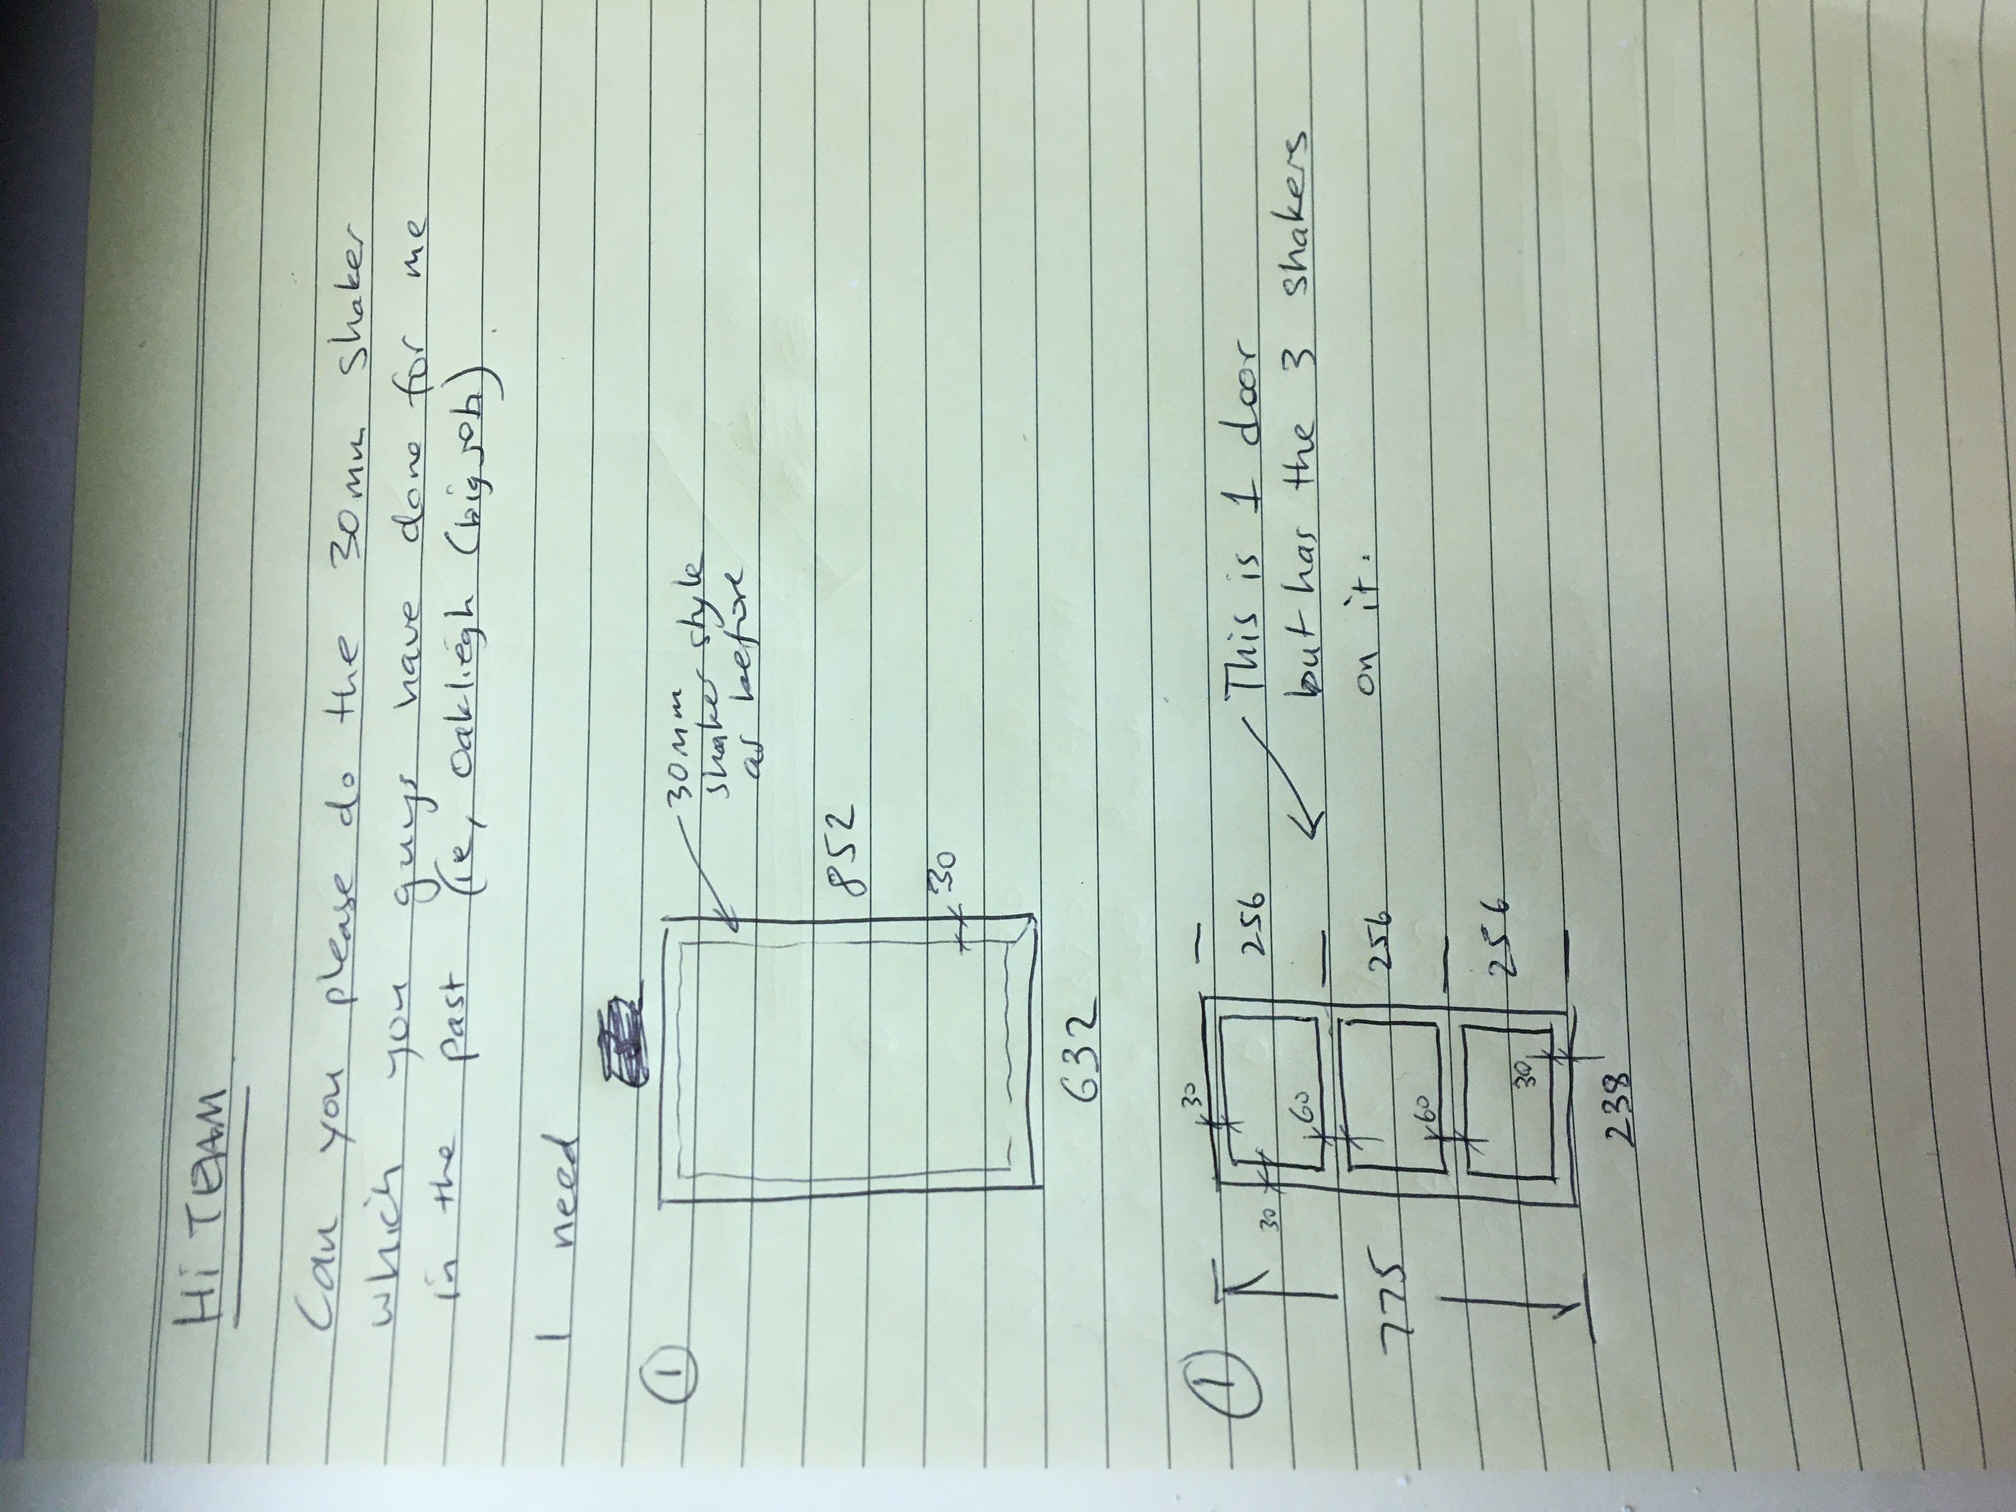 Hi TEAM
Can you please do the 30mm shaker
which you guys have done for me
in the past (ie, oakliegh (big job)
I need
①
30mm
shaker style
as before
852
30
632
①
This is 1 door
but has the 3 shakers
on it.
30
256
30
60
256
775
60
256
30
238